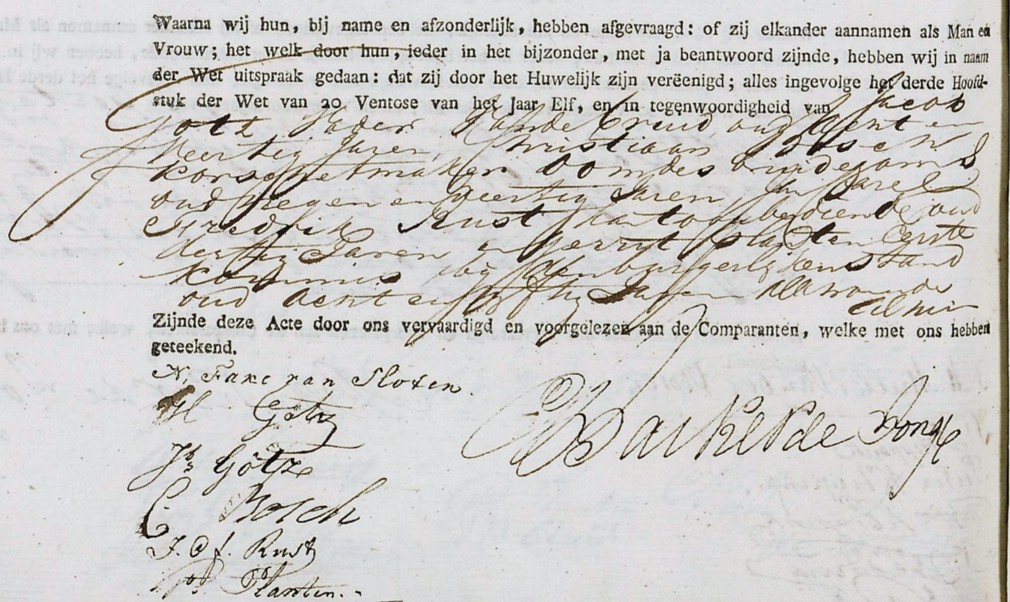 Waarna wij hun, bij name en afzonderlijk, hebben afgevraagd: of zij elkander aannamen als Man en
Vrouw; het welk door hun, ieder in het bijzonder, met ja beantwoord zijnde, hebben wij in naam
der Wet uitspraak gedaan: dat zij door het Huwelijk zijn veréénigd; alles ingevolge het derde Hoofd-
stuk der Wet van 20 Ventose van het Jaar Elf, en in tegenwoordigheid van Jacob
Götz, Vader van de Bruid, oud Acht en
Veertig Jaren, Christiaan Bosch
Korschetmaker Oom des Bruidegoms
oud Negen en Veertig Jaren Carel
Fredrik Rust Kantoorbediende oud
dertig Jaren en Gerrit Planten Eerste
Kommies bij den burgerlijken stand
oud Acht en Jaren Alle wonende
Alhier
Zijnde deze Acte door ons vervaardigd en voorgelezen aan de Comparanten, welke met ons hebben
geteekend.
N. van Sloten
H Götz
Jb Götz
C Bosch
Rust
Planten